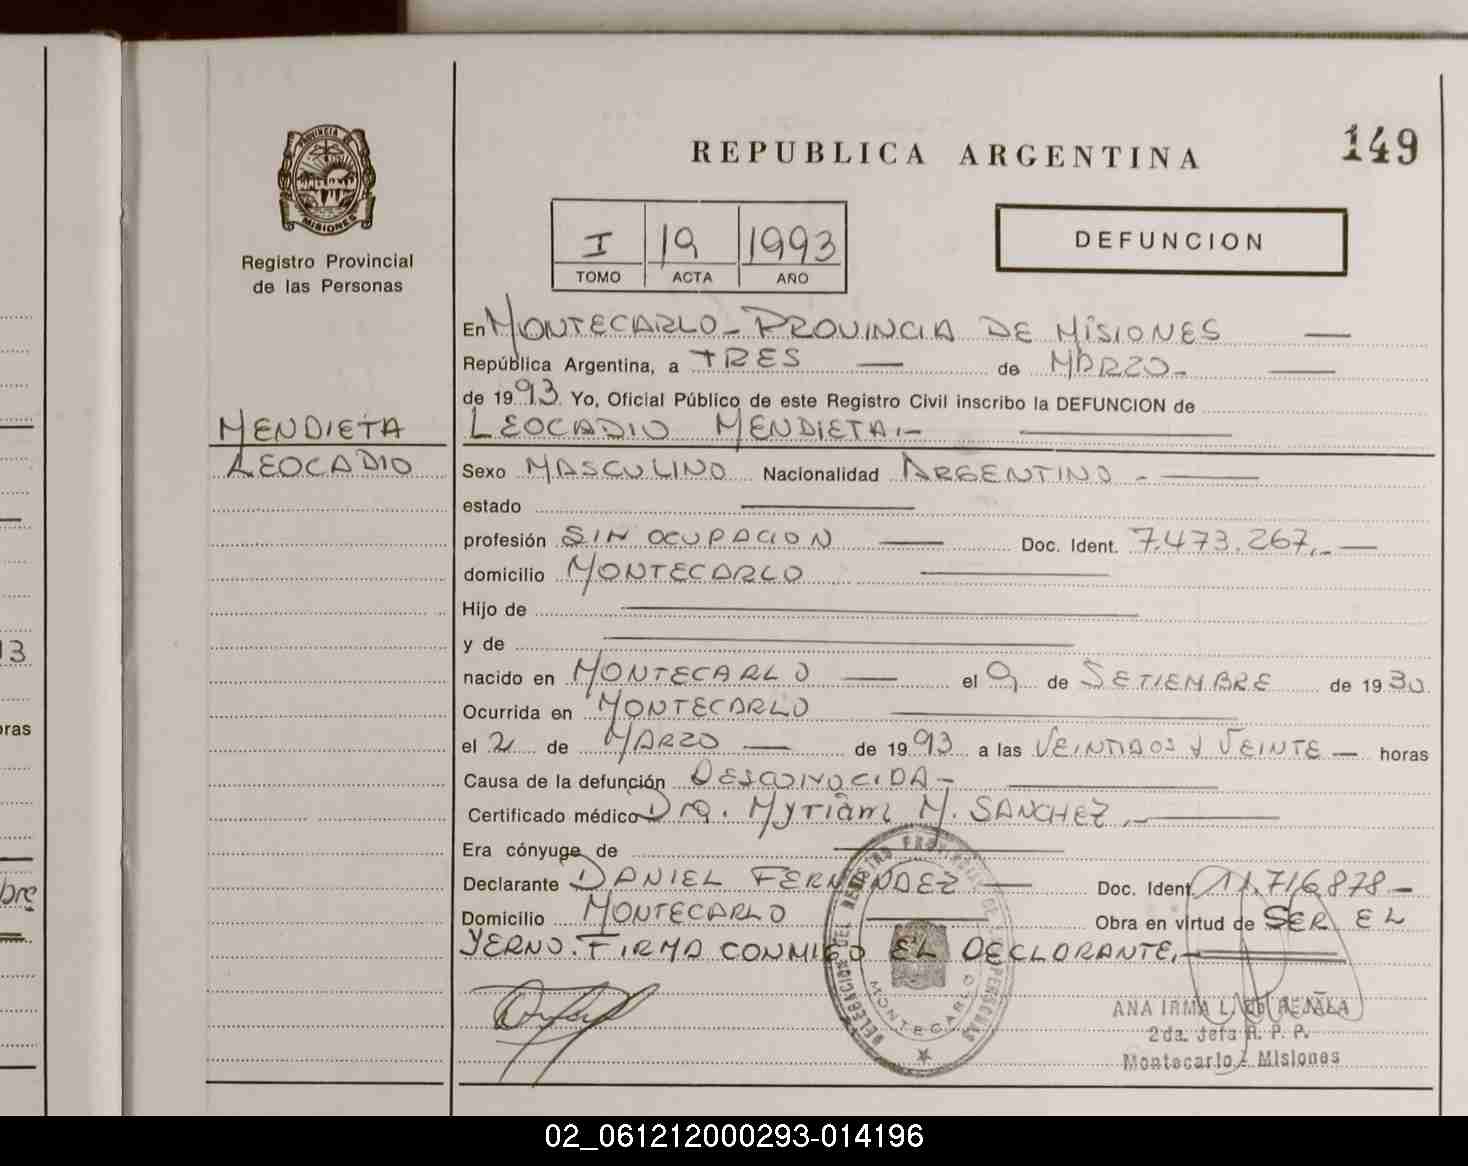 PROVINCIA DE
MISIONES
Registro Provincial
de las Personas
MENDIETA
LEOCADIO
REPUBLICA ARGENTINA
149
I 19 1993
TOMO ACTA AÑO
DEFUNCION
En MONTECARLO - PROVINCIA DE MISIONES —
República Argentina, a TRES — de MARZO - —
de 1993. Yo, Oficial Público de este Registro Civil inscribo la DEFUNCION de
LEOCADIO MENDIETA.- —
Sexo MASCULINO Nacionalidad ARGENTINO - —
estado —
profesión SIN OCUPACION — Doc. Ident. 7.473.267.- —
domicilio MONTECARLO —
Hijo de —
y de —
nacido en MONTECARLO — el 9 de SETIEMBRE de 1930
Ocurrida en MONTECARLO —
el 2 de MARZO — de 1993 a las VEINTIDOS Y VEINTE — horas
Causa de la defunción DESCONOCIDA - —
Certificado médico Dra. Myriam M. SANCHEZ.- —
Era cónyuge de —
Declarante DANIEL FERNANDEZ — Doc. Ident. 11.716.878 —
Domicilio MONTECARLO — Obra en virtud de SER EL
YERNO. FIRMA CONMIGO EL DECLARANTE.- —
DELEGACION DEL REGISTRO PROVINCIAL DE LAS PERSONAS
MONTECARLO
ANA IRMA L.
2da. Jefa R. P. P.
Montecarlo - Misiones
13
oras
bre
02_061212000293-014196